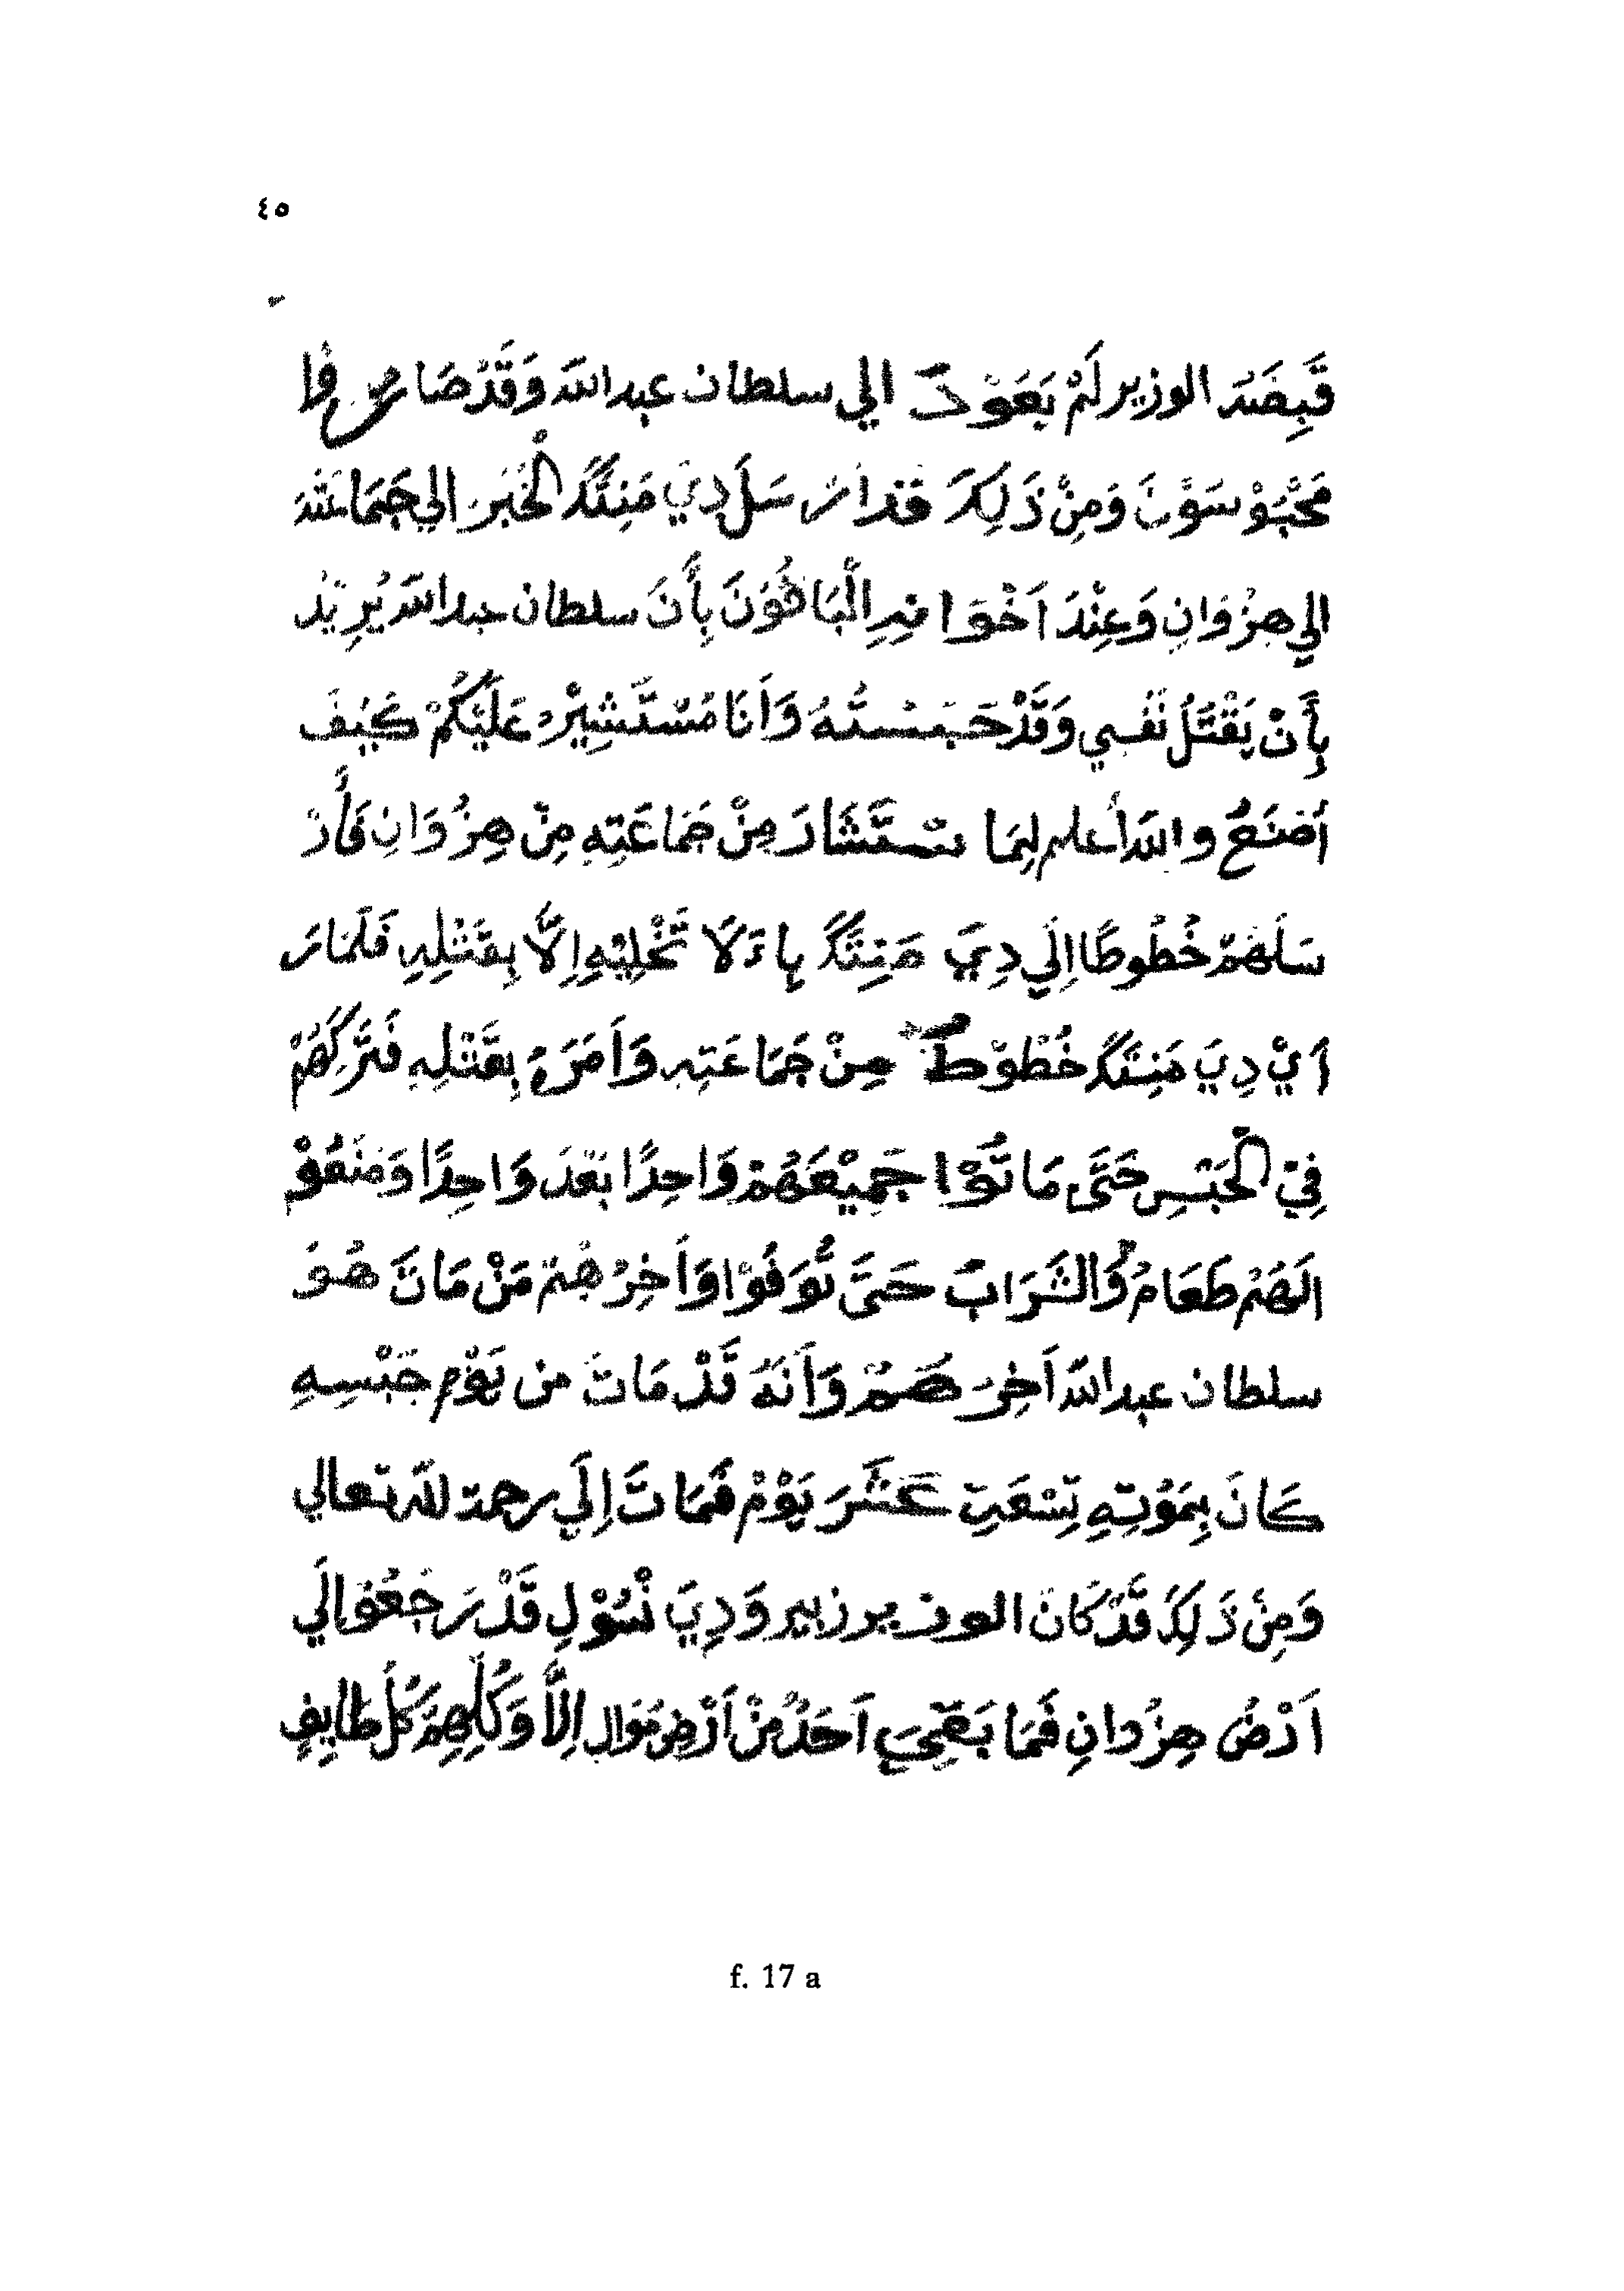 ٤٥
قَبِضَهُ الوزير لَمْ يَعَوْدَ الي سلطان عبدالله وَقَدْ صَارُوا
مَحْبُوْسَوْنَ وَمِنْ ذَلِكَ قَدْ اَرْسَلَ دِيَ مَنِنَّكَ الْخَبَرَ الي جَمَاعَتَهُ
الي هِزْوَانِ وَعِنْدَ اَخْوَانِهِ الْبَاقُوْنَ بِأَنَ سلطان عبدالله يُرِيْدُ
بِأَنْ يَقْتَلُ نَفْسِي وَقَدْ حَبَسْتُهُ وَاَنَا مُسْتَشِيْرُ عَلَيْكُمْ كَيْفَ
اَصْنَعُ والله أعلم لِمَا سْتَشَارَ مِنْ جَمَاعَتِهِ مِنْ هِزْوَانِ فَأَرْ
سَلَهُمْ خُطُوطًا اِلَي دِيَ مَنِنَّكَ بِاءَ لَا تَخْلِيْهِ اِلَّا بِقَتْلِهِ فَلَمَا رَ
اَيْ دِيَ مَنِنَّكَ خُطْوْطَ مِنْ جَمَاعَتِهِ وَاَمَرَهُ بِقَتْلِهِ فَتَرَكَهُمْ
فِيْ الْحَبْسِ حَتَّى مَاتُوْا جَمِيْعَهُمْ وَاحِدًا بَعْدَ وَاحِدًا وَمَنَعُوْ
الَهُمْ طَعَامُ وَالشَّرَابَ حَتَّى تُوَفَوْا وَاَخِرُهُمْ مَنْ مَاتَ هُوَ
سلطان عبدالله اَخِرَهُمْ وَاَنَهُ قَدْ مَاتَ من يَوْمِ حَبْسِهِ
كَانَ بِمَوْتِهِ تِسْعَتِ عَشَرَ يَوْمْ فَمَاتَ اِلَي رحمة لله تعالي
وَمِنْ ذَلِكَ قَدْ كَانَ الوزير زبير وَدِيَ نْسُوْلِ قَدْ رَجَعُوْ الَي
اَرْضُ هِزْوانِ فَمَا بَقِيَ اَحَدُ مِنْ اَرْضِ مَوَالِ اِلَّا وَكُلُّهِمْ كُلُ طايِفِ
f. 17 a